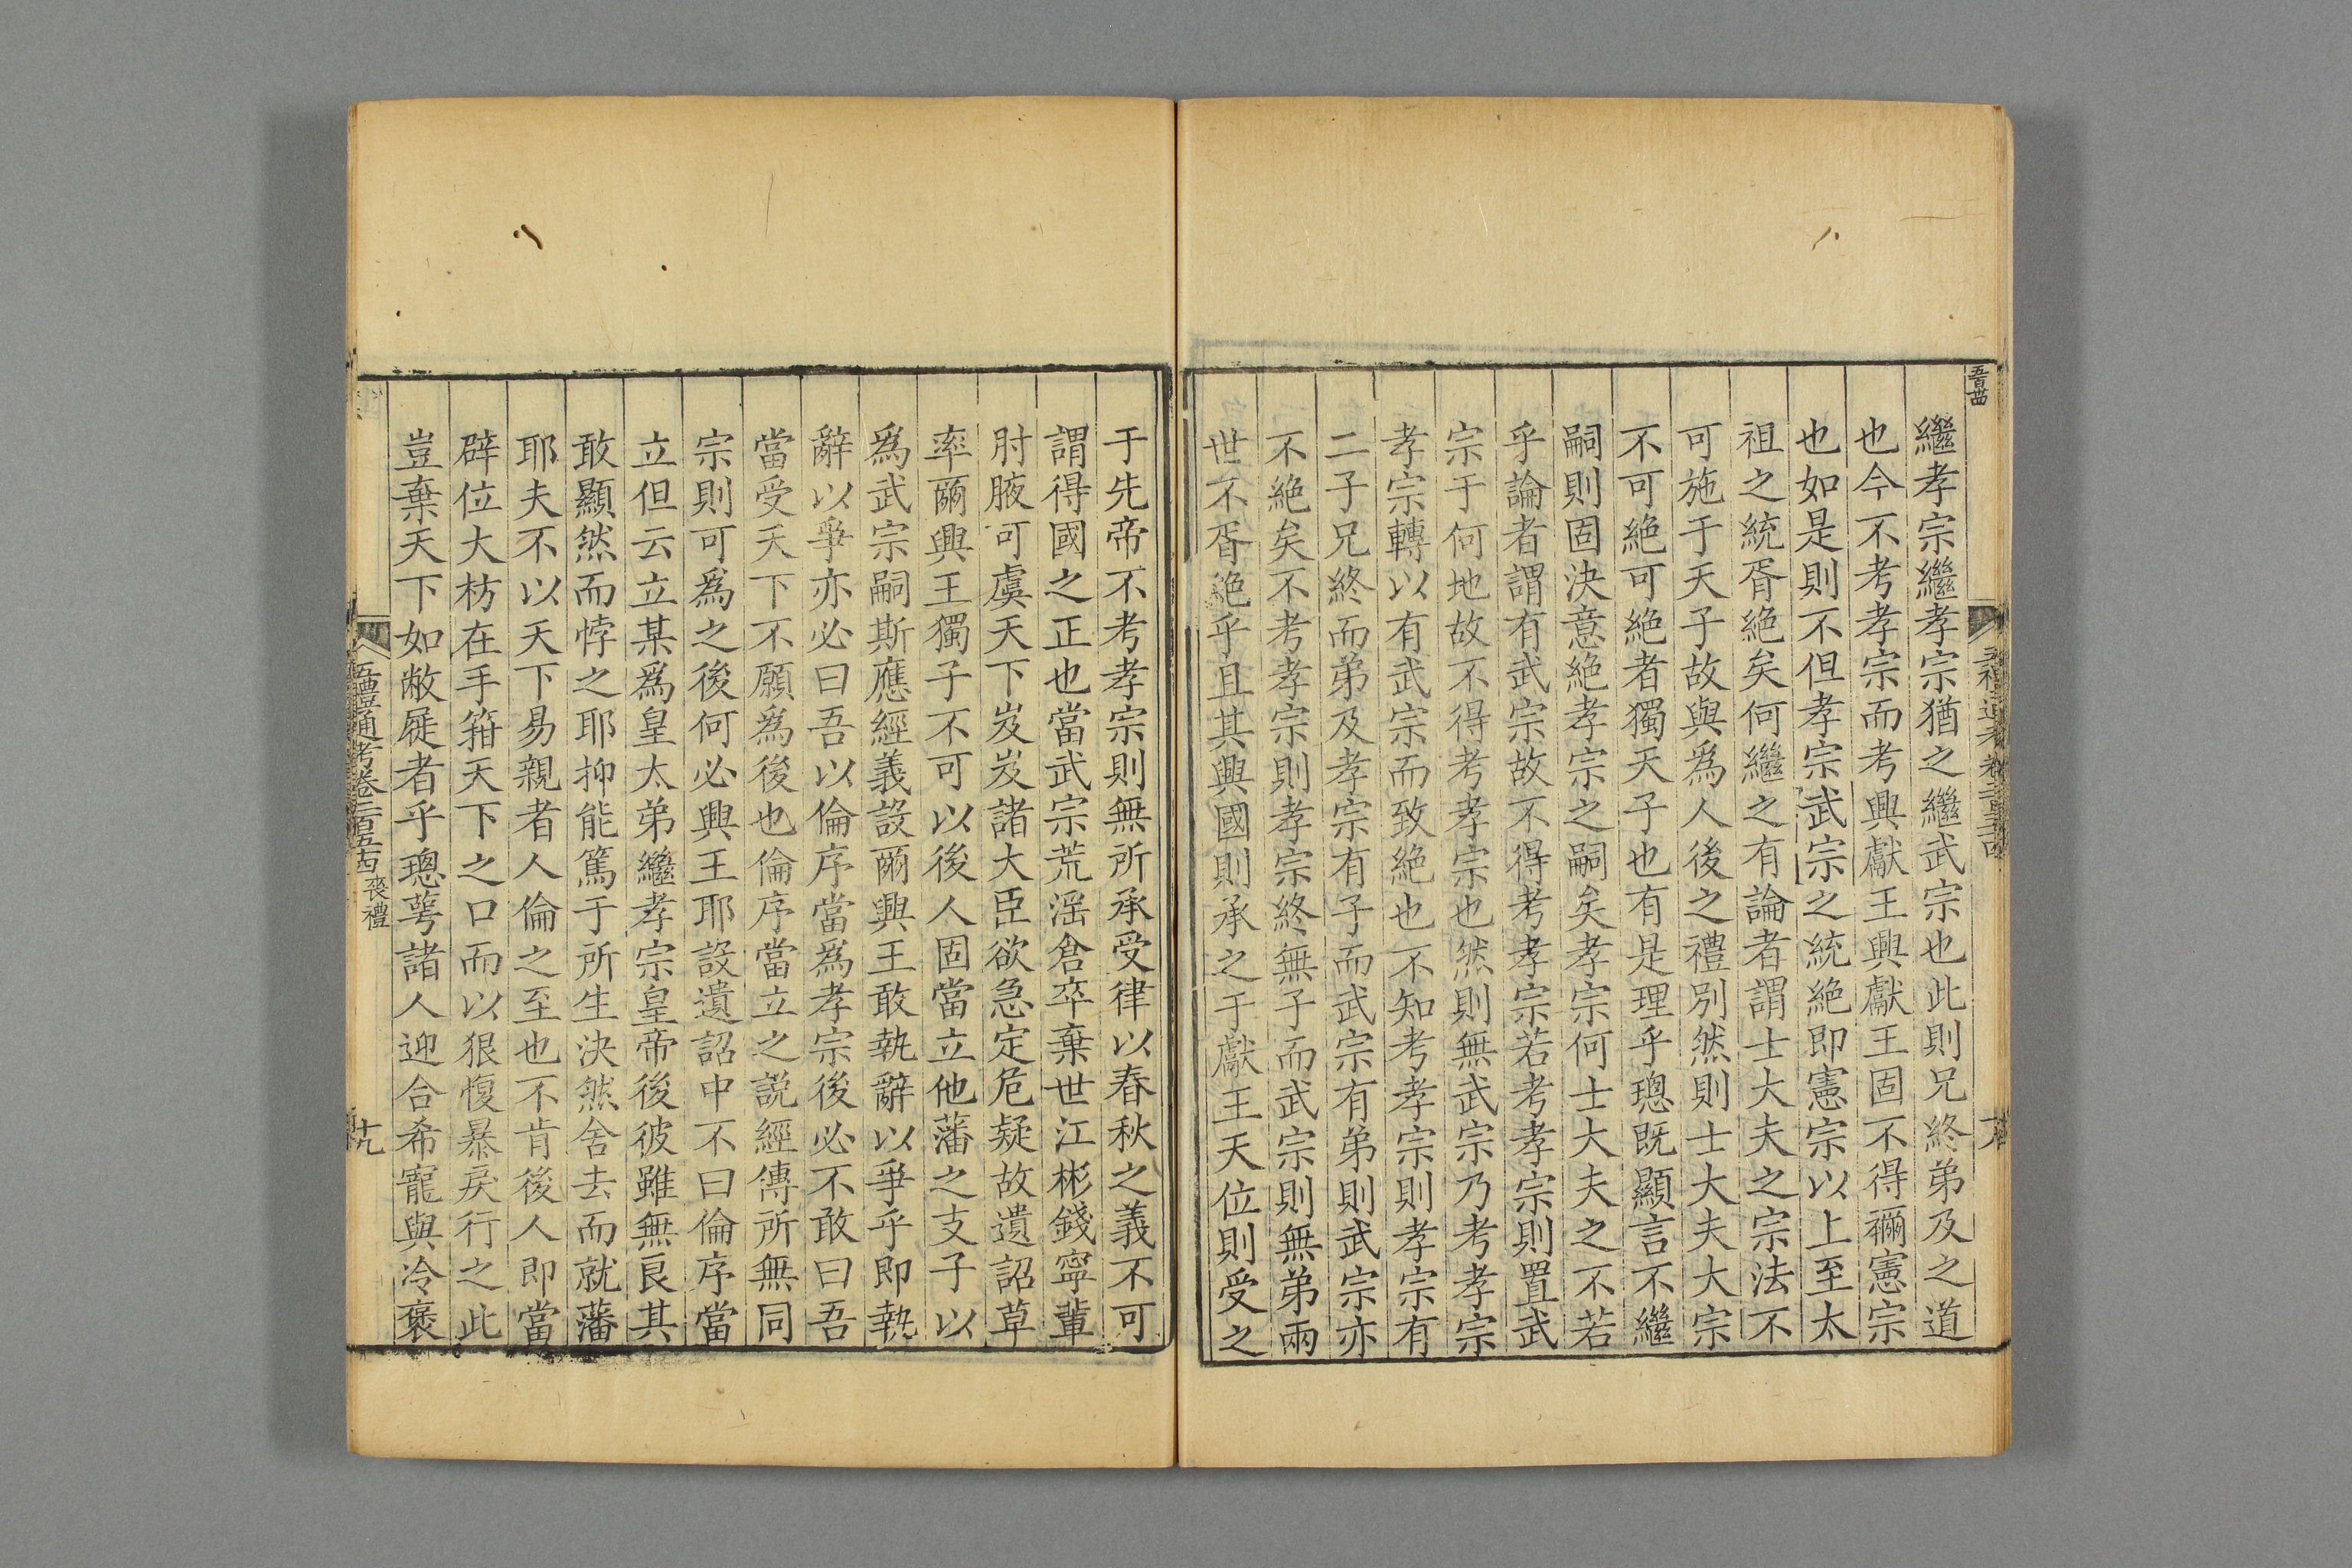 繼孝宗繼孝宗猶之繼武宗也此則兄終弟及之道
也今不考孝宗而考興獻王興獻王固不得禰憲宗
也如是則不但孝宗武宗之統絶即憲宗以上至太
祖之統胥絶矣何繼之有論者謂士大夫之宗法不
可施于天子故與爲人後之禮別然則士大夫大宗
不可絶可絶者獨天子也有是理乎璁既顯言不繼
嗣則固決意絶孝宗之嗣矣孝宗何士大夫之不若
乎論者謂有武宗故不得考孝宗若考孝宗則置武
宗于何地故不得考孝宗也然則無武宗乃考孝宗
孝宗轉以有武宗而致絶也不知考孝宗則孝宗有
二子兄終而弟及孝宗有子而武宗有弟則武宗亦
不絶矣不考孝宗則孝宗終無子而武宗則無弟兩
世不胥絶乎且其興國則承之于獻王天位則受之
于先帝不考孝宗則無所承受律以春秋之義不可
謂得國之正也當武宗荒淫倉卒棄世江彬錢寧輩
肘腋可虞天下岌岌諸大臣欲急定危疑故遺詔草
率爾興王獨子不可以後人固當立他藩之支子以
爲武宗嗣斯應經義設爾興王敢執辭以爭乎即執
辭以爭亦必曰吾以倫序當爲孝宗後必不敢曰吾
當受天下不願爲後也倫序當立之説經傳所無同
宗則可爲之後何必興王耶設遺詔中不曰倫序當
立但云立某爲皇太弟繼孝宗皇帝後彼雖無良其
敢顯然而悖之耶抑能篤于所生決然舍去而就藩
耶夫不以天下易親者人倫之至也不肯後人即當
辟位大枋在手箝天下之口而以狠愎暴戾行之此
豈棄天下如敝屣者乎璁萼諸人迎合希寵與冷褒
五禮通考卷二百五十四 喪禮
十九